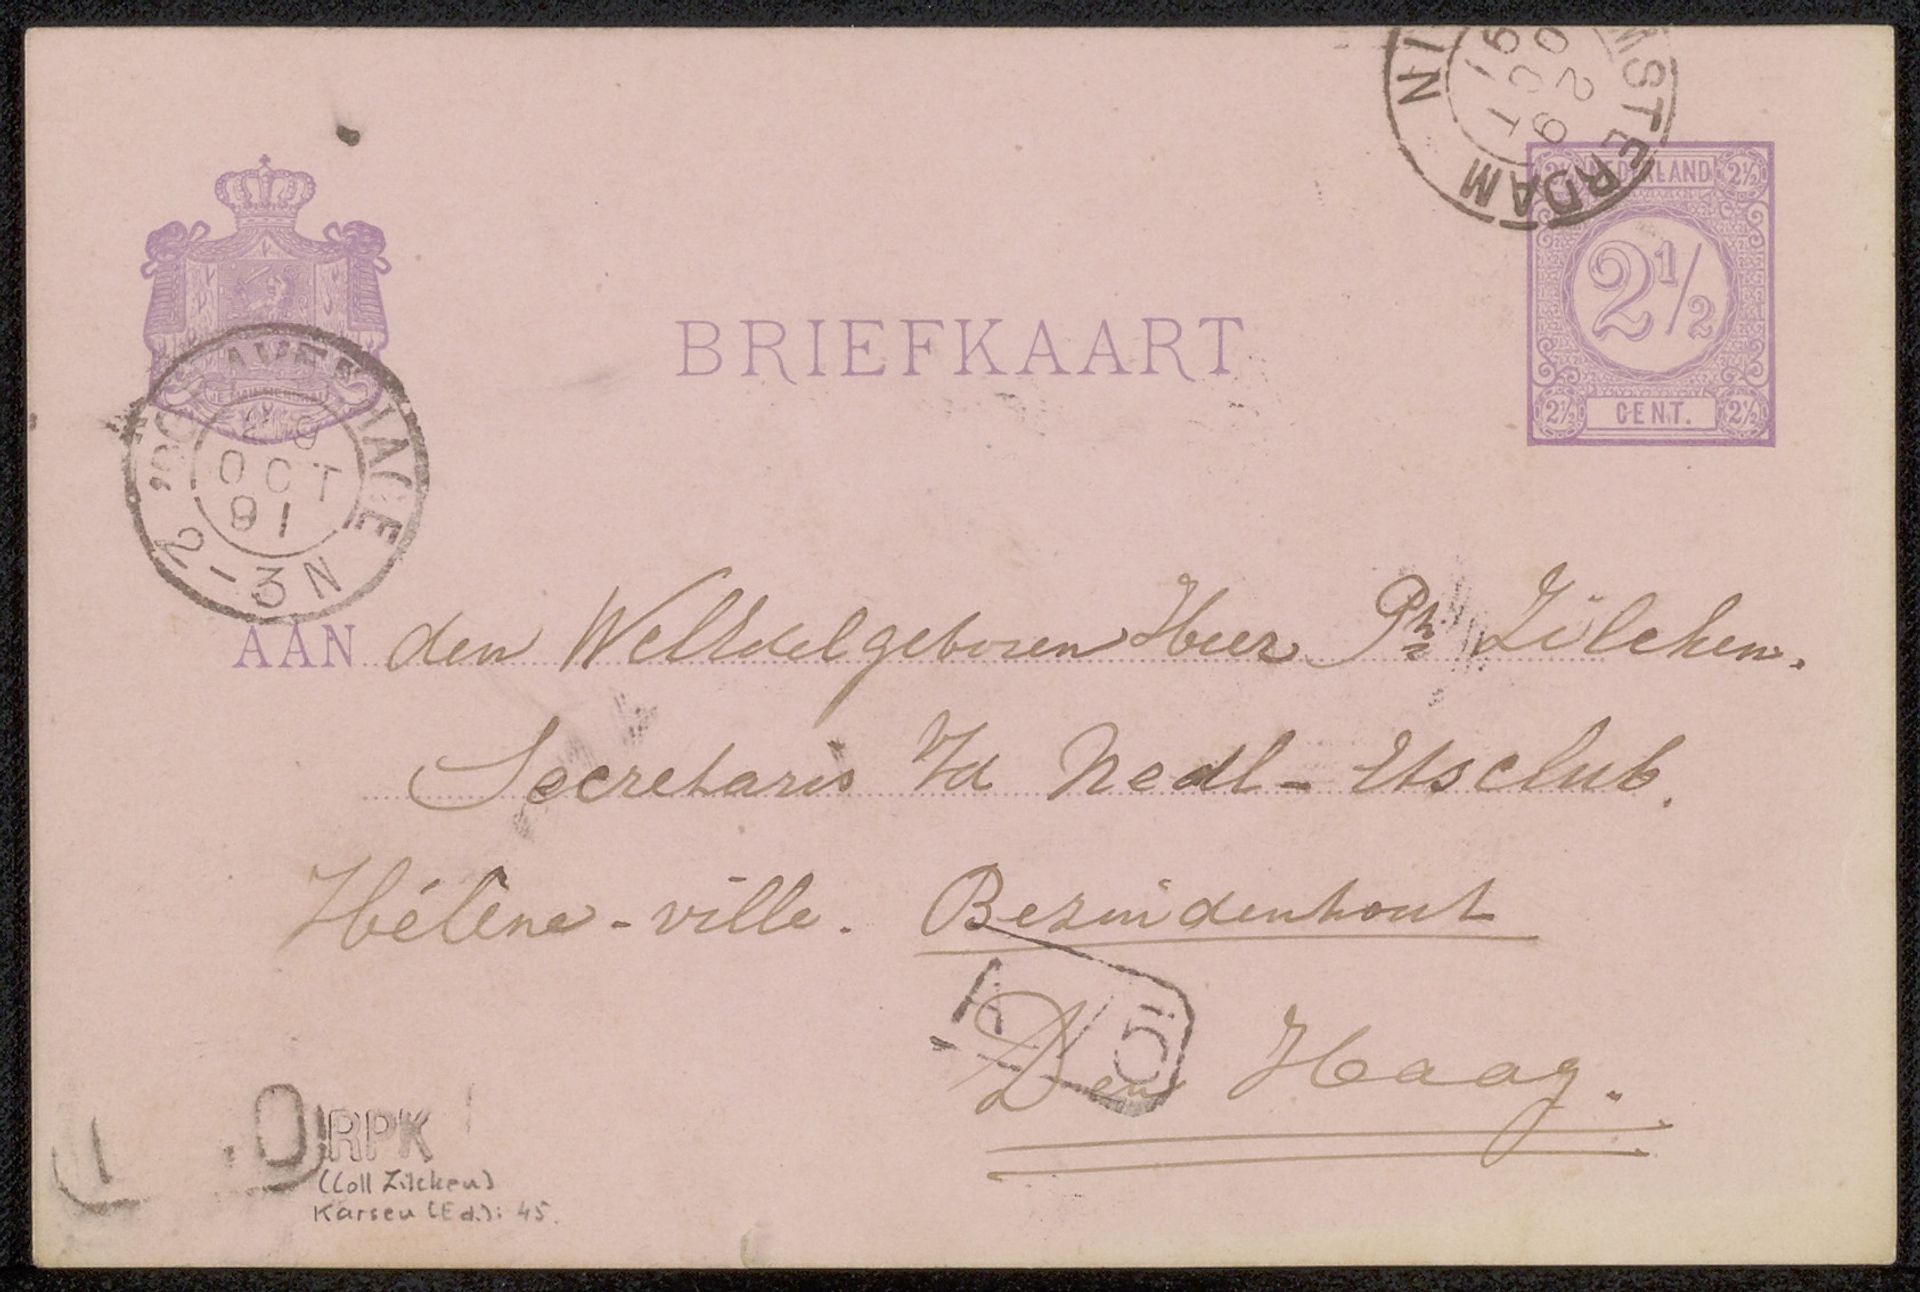 AMSTERDAM NI
29 OCT 91
NEDERLAND
2½ 2½
2½
2½ CENT. 2½
BRIEFKAART
JE MAINTIENDRAI
'SGRAVENHAGE
29
OCT
91
2-3N
AAN den WelEdelgeboren Heer Ph Zilcken.
Secretaris v/d Nedl-Etsclub.
Hélène-ville. Bezuidenhout
Den Haag.
RPK
(Coll Zilcken)
Karsen (Ed.): 45.